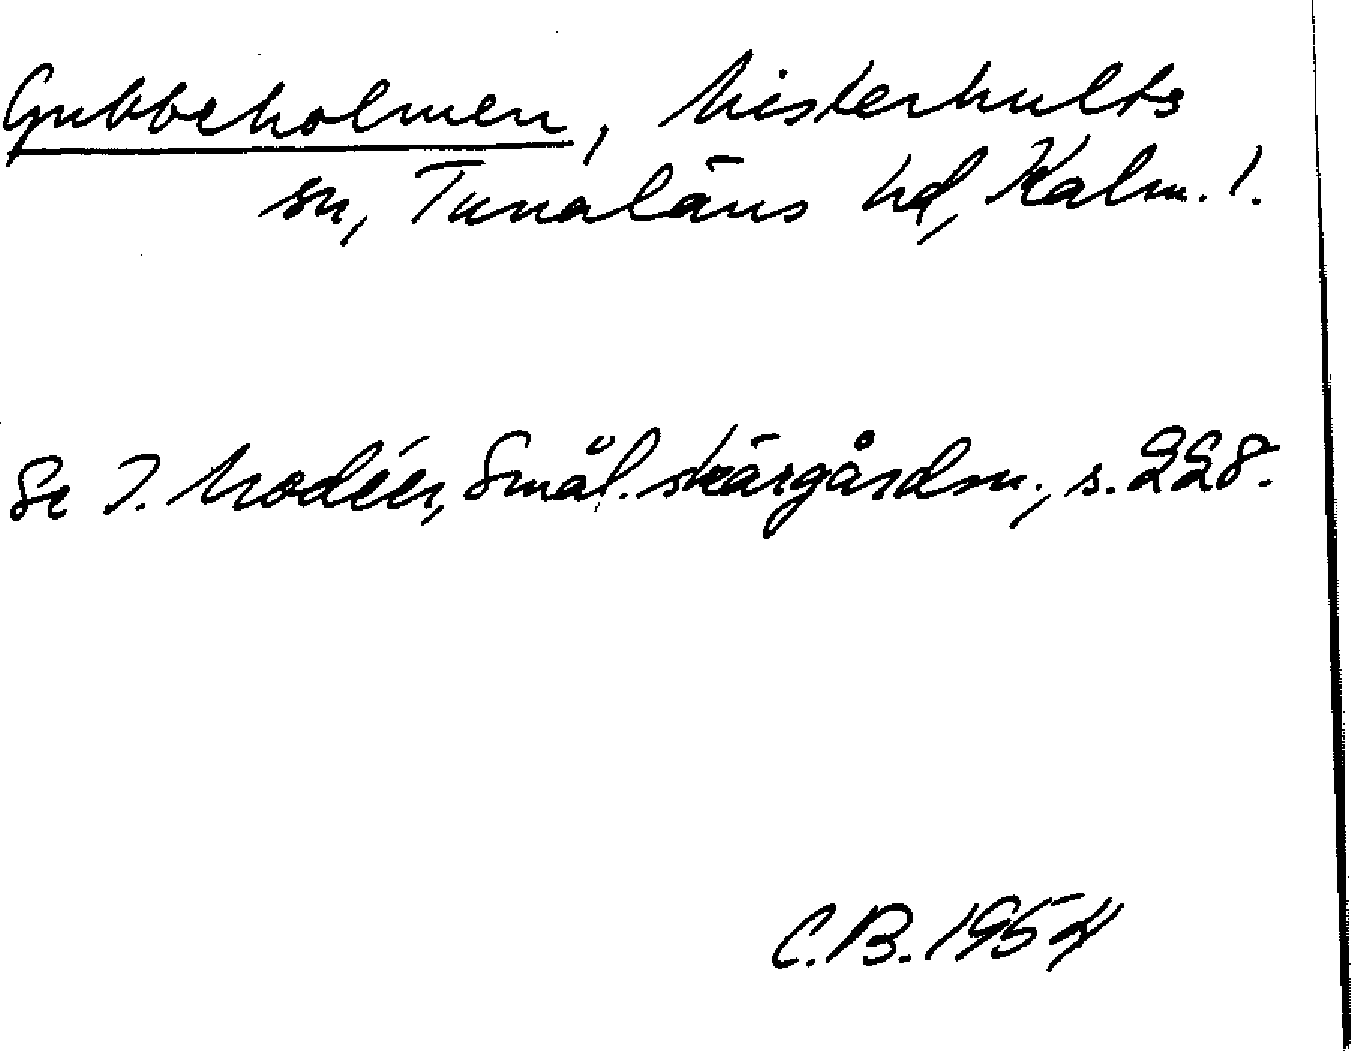 Gubbeholmen, Misterhults
sn, Tunaläns hd, Kalm. l.
Se I. Modéer, Smål. skärgårdsn., s. 228.
C.B. 1954